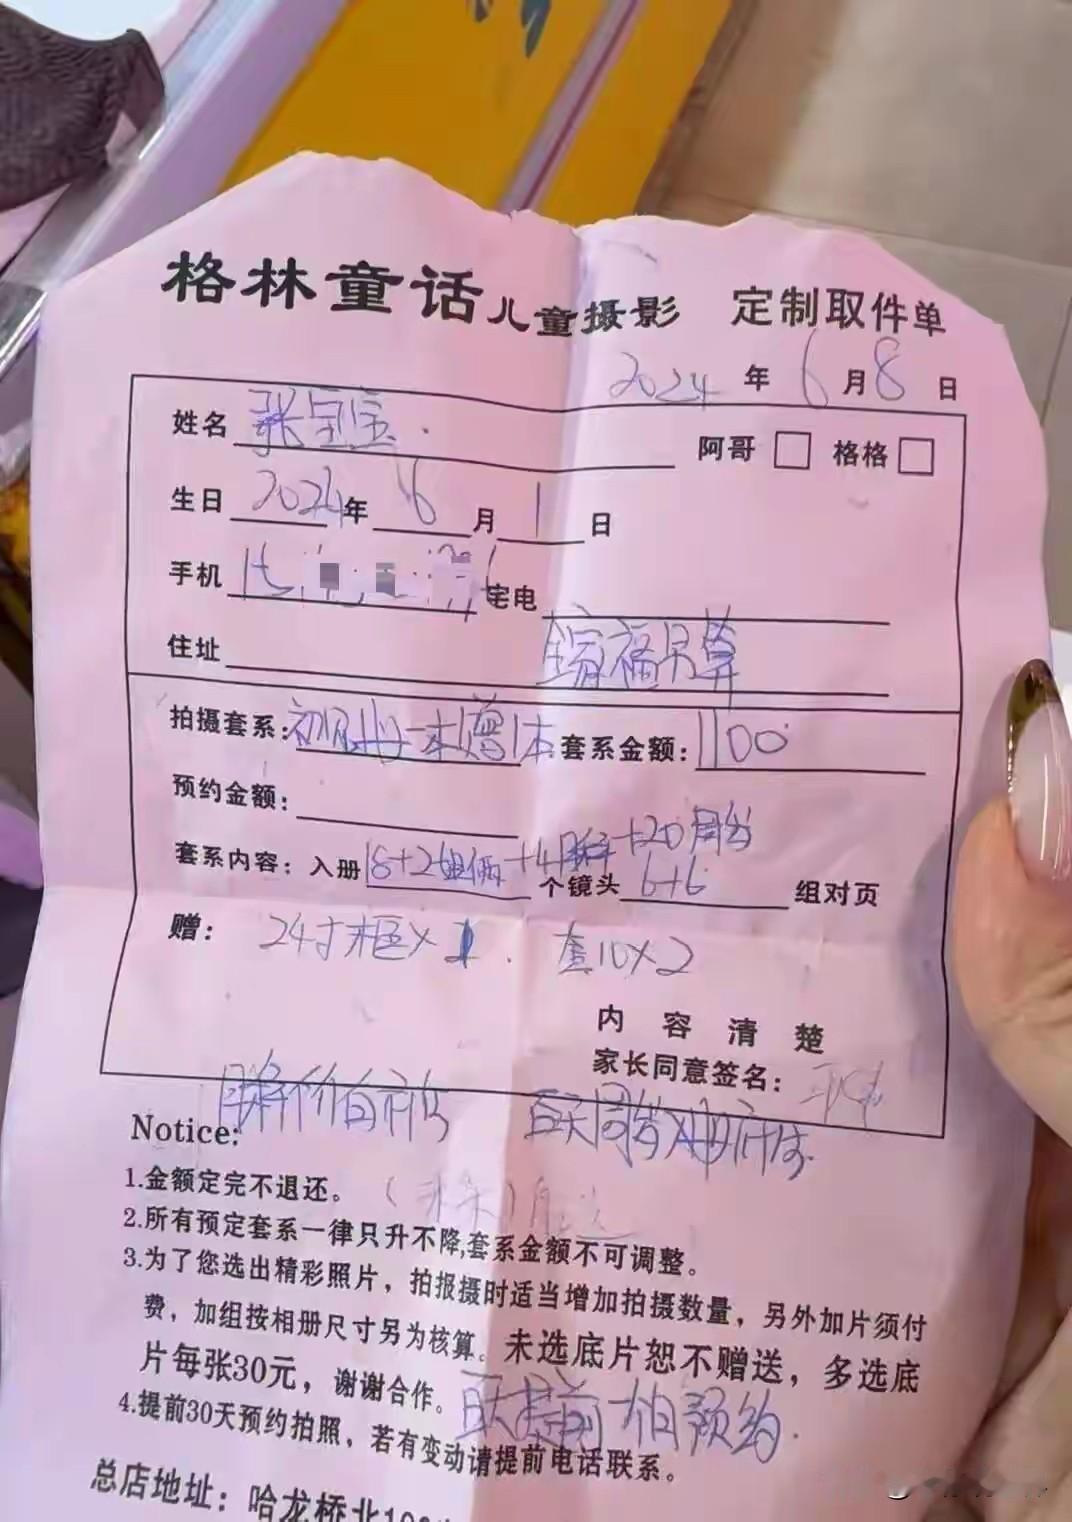 格林童话儿童摄影 定制取件单
2024年6月8日
姓名 张宝宝 阿哥□ 格格□
生日 2024年6月1日
手机 宅电
住址
拍摄套系: 套系金额: 1100
预约金额:
套系内容: 入册 18+2姐俩+4 +20周岁 个镜头 6+6 组对页
赠: 24寸框×1. 10×2
内容清楚
家长同意签名:
百天周岁
Notice:
1.金额定完不退还。
2.所有预定套系一律只升不降,套系金额不可调整。
3.为了您选出精彩照片，拍报摄时适当增加拍摄数量，另外加片须付
费，加组按相册尺寸另为核算。未选底片恕不赠送，多选底
片每张30元，谢谢合作。
前 拍预约.
4.提前30天预约拍照，若有变动请提前电话联系。
总店地址：哈龙桥北